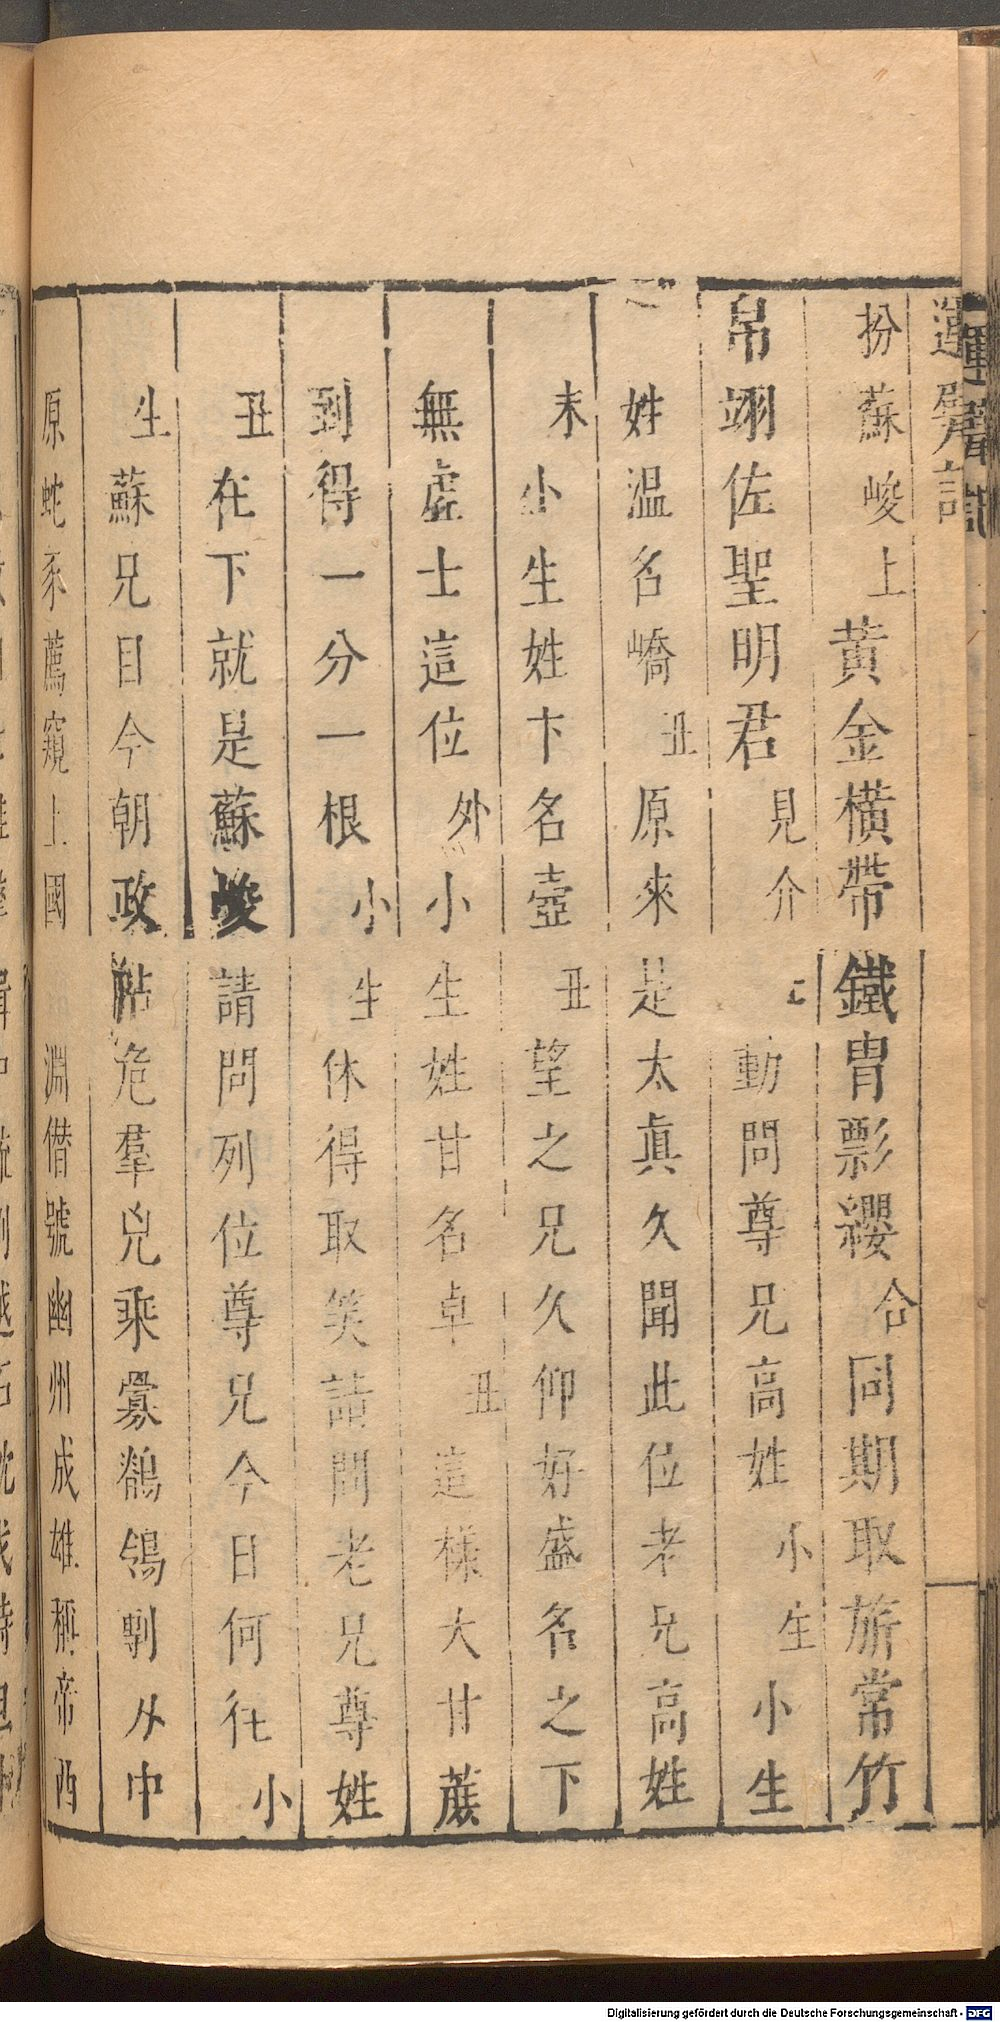 運甓記
扮蘇峻上黃金橫帶鐵冑影纓合同期取旂常竹
帛翊佐聖明君見介上動問尊兄高姓小生小生
姓温名嶠丑原來是太眞久聞此位老兄高姓
末小生姓卞名壺丑望之兄久仰好盛名之下
無虛士這位外小生姓甘名卓丑這樣大甘蔗
到得一分一根小生休得取笑請問老兄尊姓
丑在下就是蘇峻請問列位尊兄今日何往小
生蘇兄目今朝政阽危羣兇乘釁鵜鴂剸刅中
原蛇豕薦窺上國淵僣號幽州成雄稱帝西
Digitalisierung gefördert durch die Deutsche Forschungsgemeinschaft - DFG